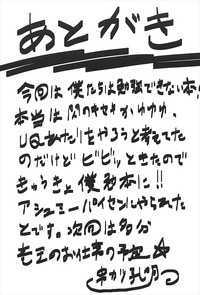 あとがき
今回は僕たちは勉強できない本!
本当は閃のキセキかゆゆゆ、
UQあたりをやろうと考えてた
のだけどビビッときたので
きゅうきょ僕勉本に!!
アシュミーパイセンにやられた
とです。次回は多分
竜王のおしごとの予定☆